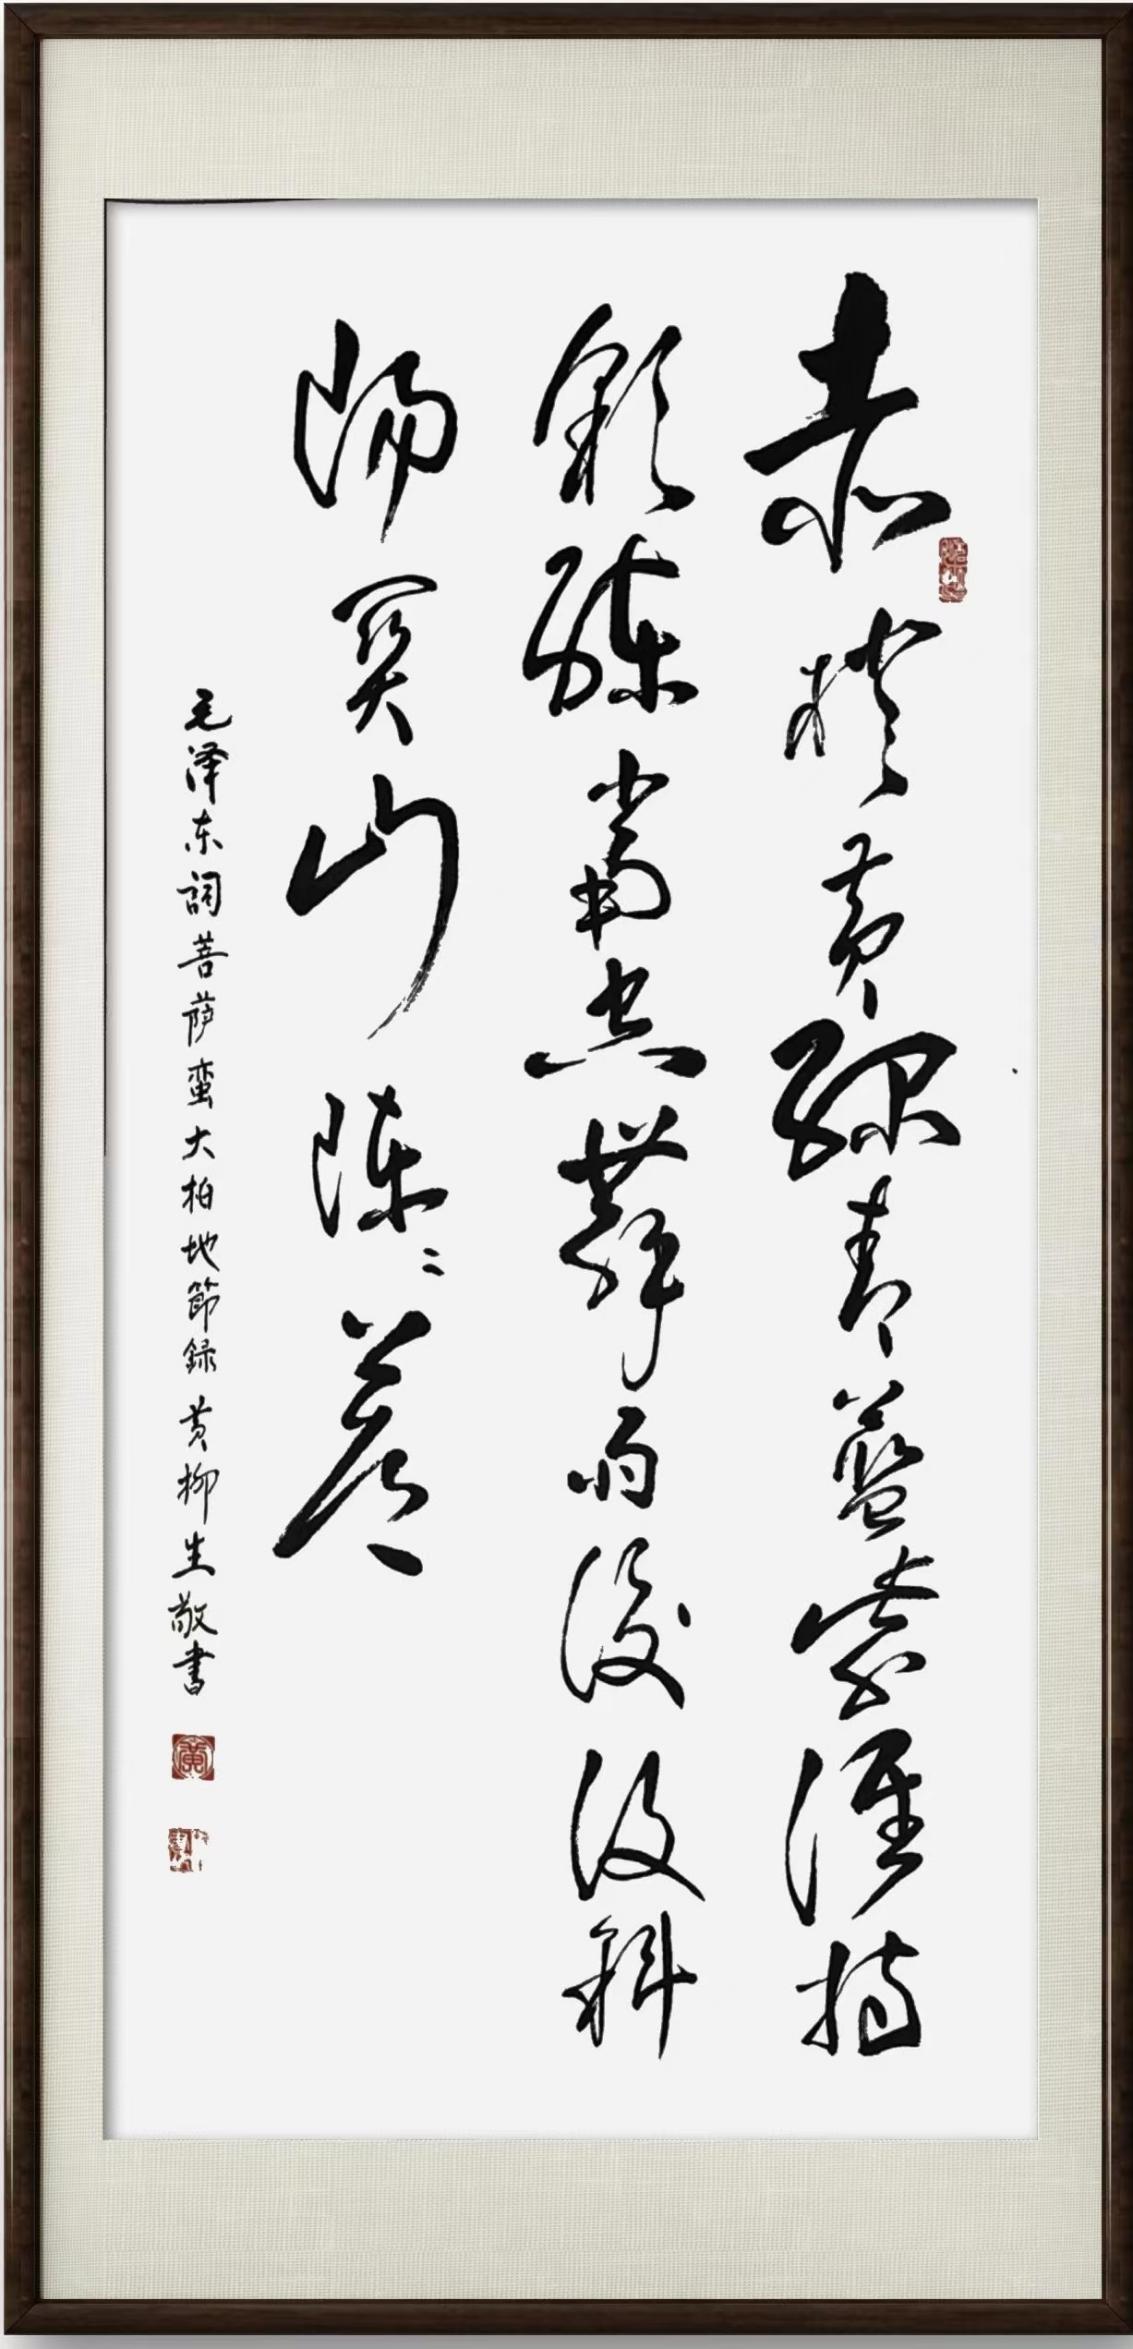 赤橙黄绿青蓝紫谁持
彩练当空舞雨后復斜
阳关山阵阵苍
毛泽东詞菩萨蛮大柏地節録黄柳生敬書
黄